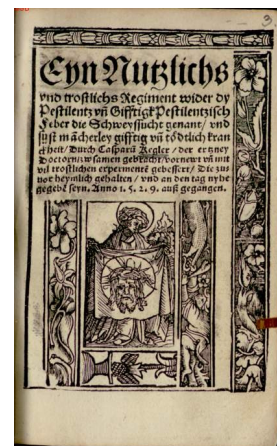 3
Eyn Nutzlichs
vnd trostlichs Regiment wider dy
Pestilentz vñ Gifftigk Pestilentzisch
Feber die Schweyssucht genant / vnd
süst in mācherley gifftig vñ tödtlich kran
ckheit / Durch Casparū Kegler / der ertzney
Doctorn zusamen gebracht / vornewt vñ mit
vil trostlichen experimentē gebessert / Die zu
uor heymlich gehalten / vnd an den tag nyhe
gegebē seyn. Anno 1. 5. 2. 9. auß gegangen.